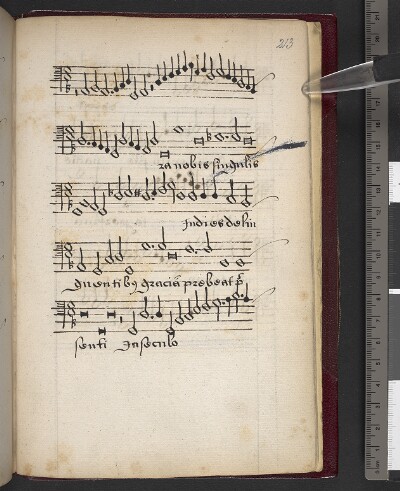 213
ra nobis singulis
Indies delin
quentibꝰ graciā prebeat p̄
senti In seculo